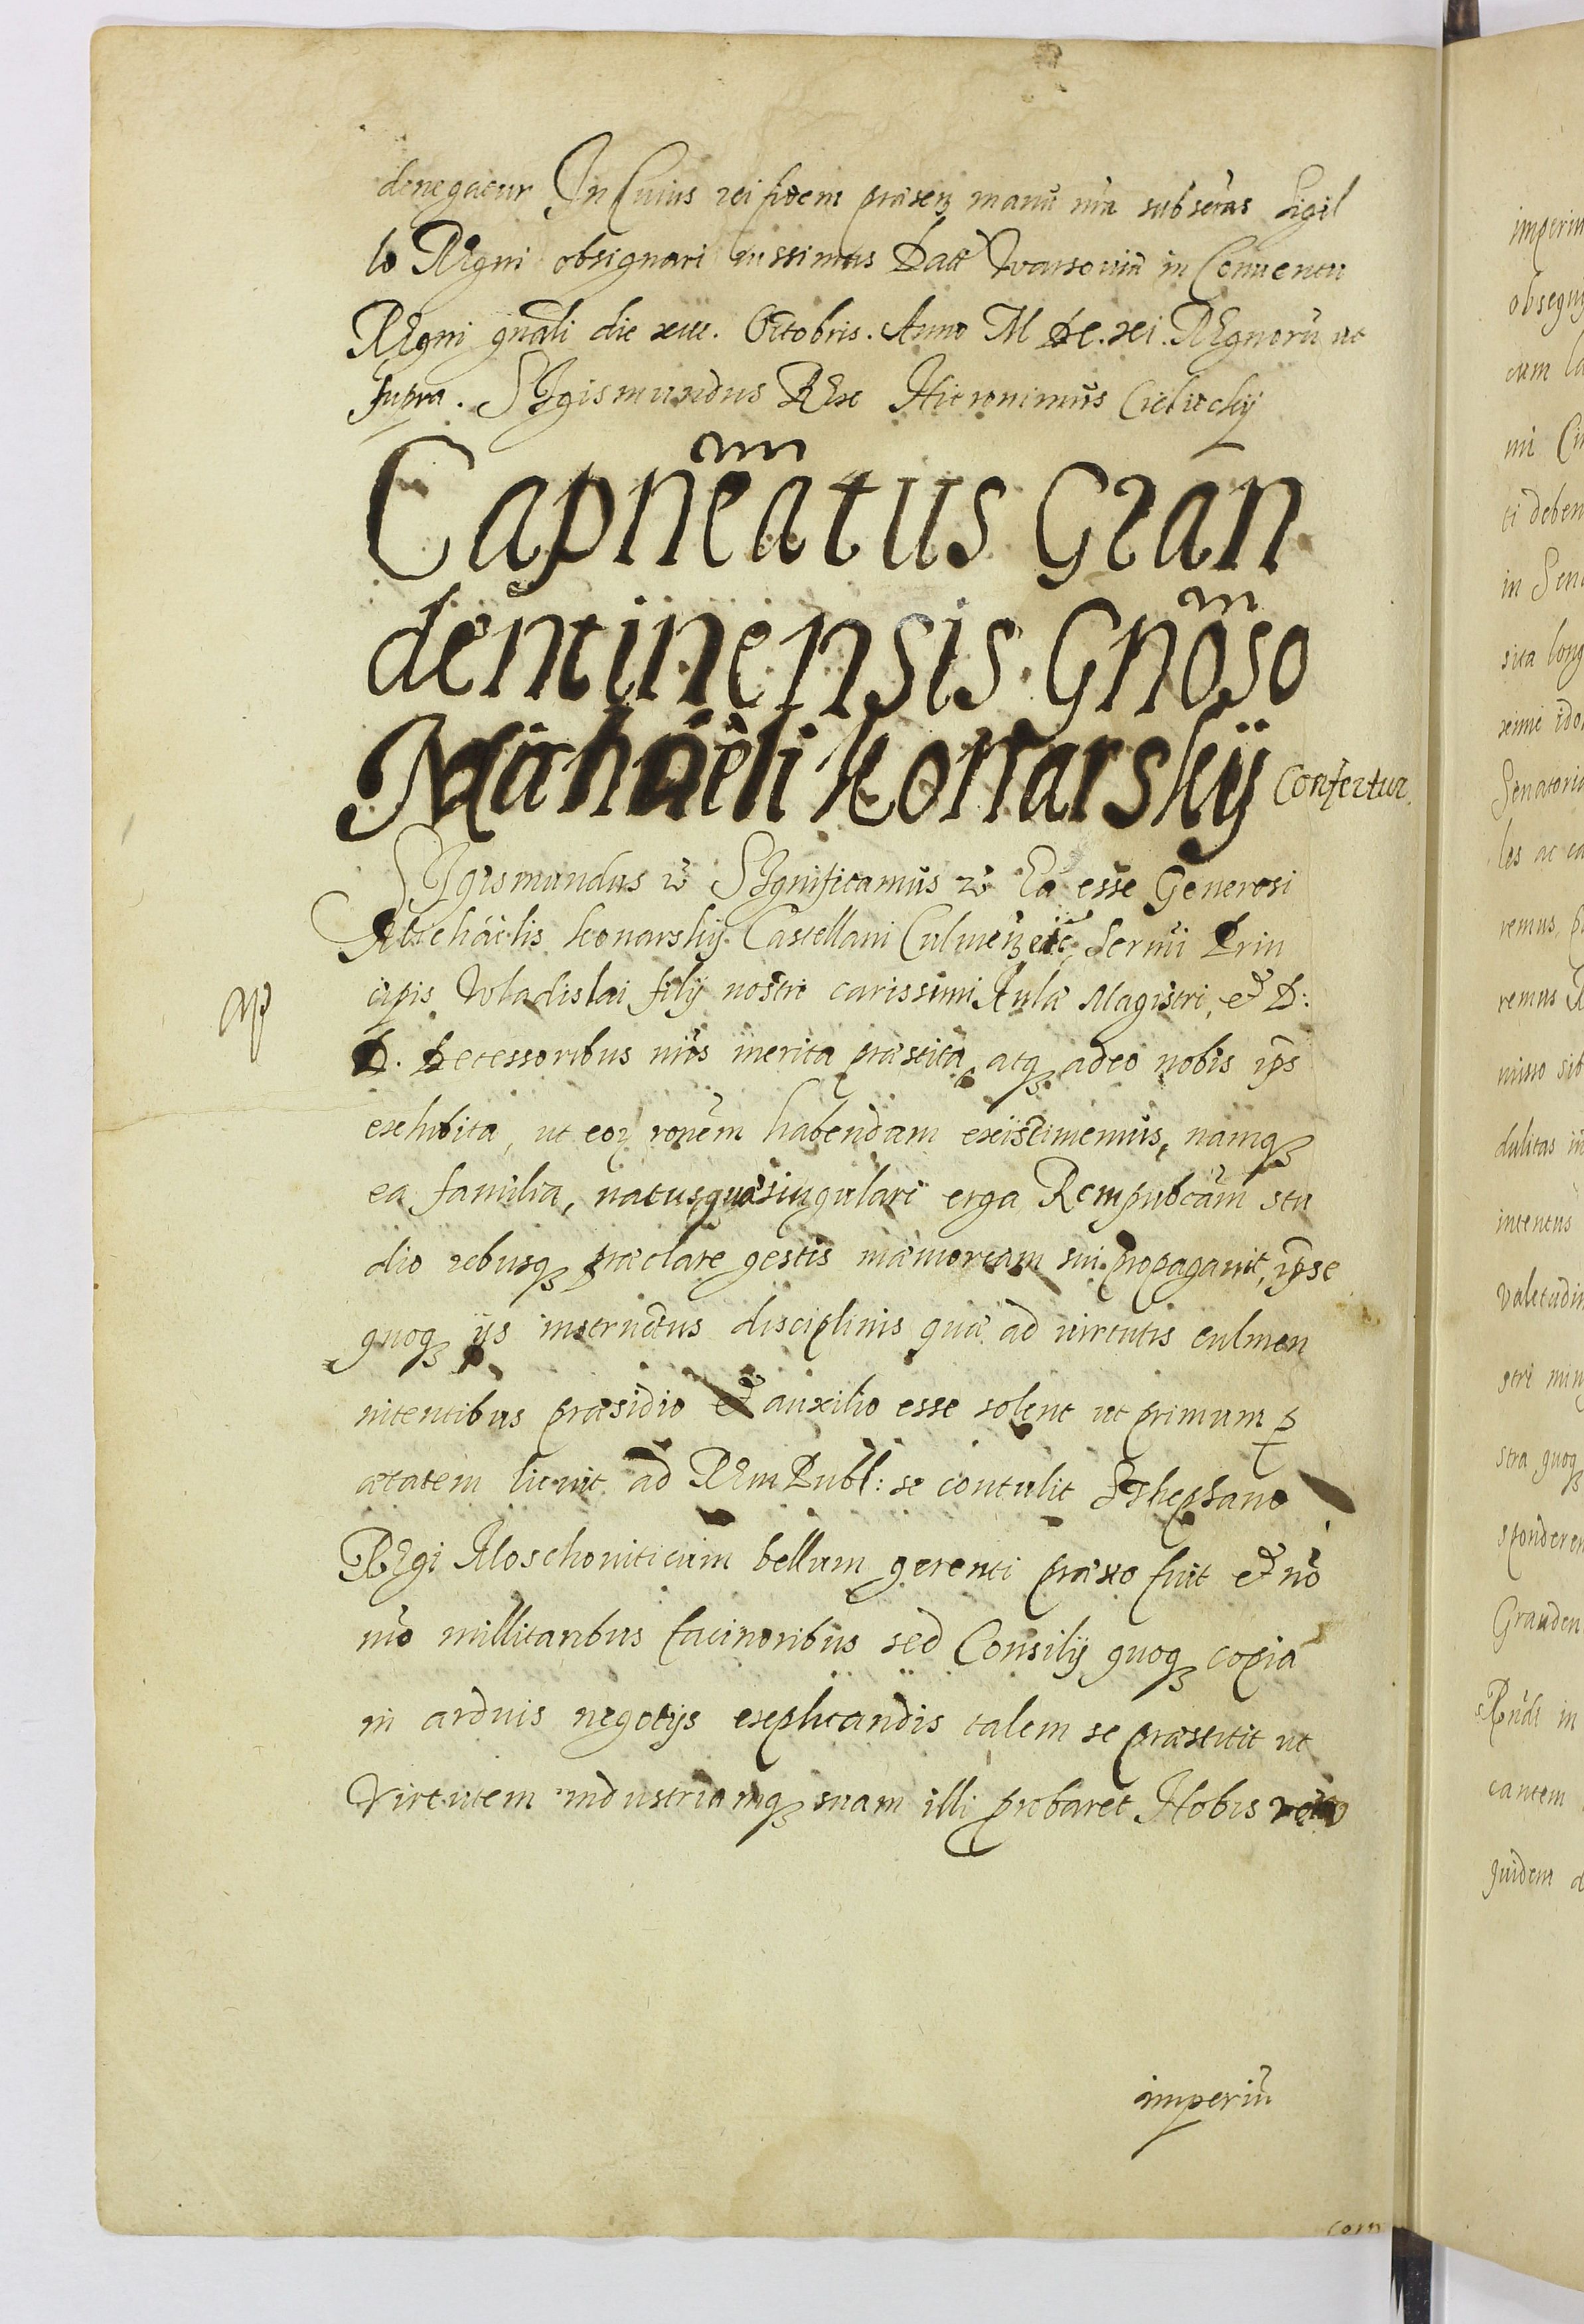 denegatur In Cuius rei fidem præsen manū nr̄a subscr̄as Sigil
lo REgni obsignari iussimus Datt Warsoviæ in Conuentu
REgni gn̄ali die xiii. Octobris. Anno M DC. xi. REgnorū ut
supra. SIgismundus REx Hieronimus Cieliecky
Capn̄eatus Gran
dentinensis Gn̄oso
Michaëli Konarskÿ Confertur
SIgismundus SIgnificamus Ea esse Generosi
Michaëlis Konarskij Castellani Culmen Serm̄i Prin
cipis Wladislai filij nostri carissimi Aulæ Magistri, et D:
D. Decessoribus nr̄is merita præstita atq adeo nobis ip̄s
exhibita, ut eor ron̄em habendam existimemus, namq
ea familia, natusque singulari erga Rempubcām stu
dio rebusq præclare gestis mæmoriam sui propagauit, ip̄se
quoq ijs instructus disciplinis quæ ad uirtutis culmen
nitentibus præsidio et auxilio esse solent ut primum p
ætatem licuit ad REm Publ: se contulit SThephano
REgi Moschouiticum bellum gerenti præsto fuit et nō
mō millitaribus facinoribus sed Consilij quoq copia
in arduis negotijs explicandis talem se præstitit ut
Virtutem industriamq suam illi probaret Nobis vero
imperiū
com
imperiu
obsequ
cum la
mi Ci
ti deben
in Sen
sita long
xime ido
Senatoriu
les ac ca
remus, p
remus
misso sib
dulitas in
intentus
Valetudin
stri min
stra quoq
sponderen
Grauden
in
cantem
quidem d